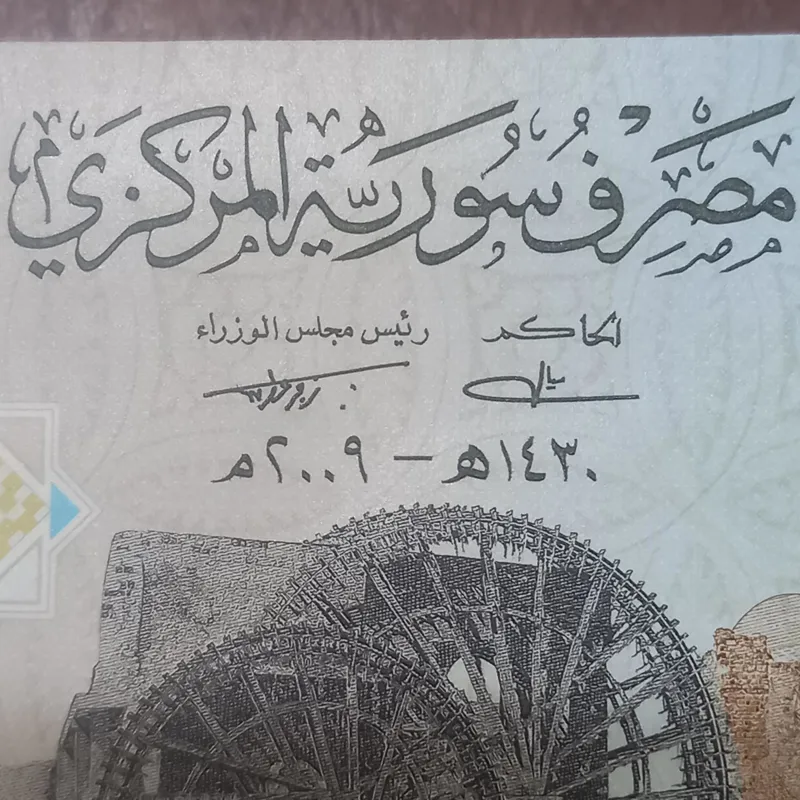 مصرف سورية المركزي
الحاكم رئيس مجلس الوزراء
١٤٣٠ھ - ٢٠٠٩م